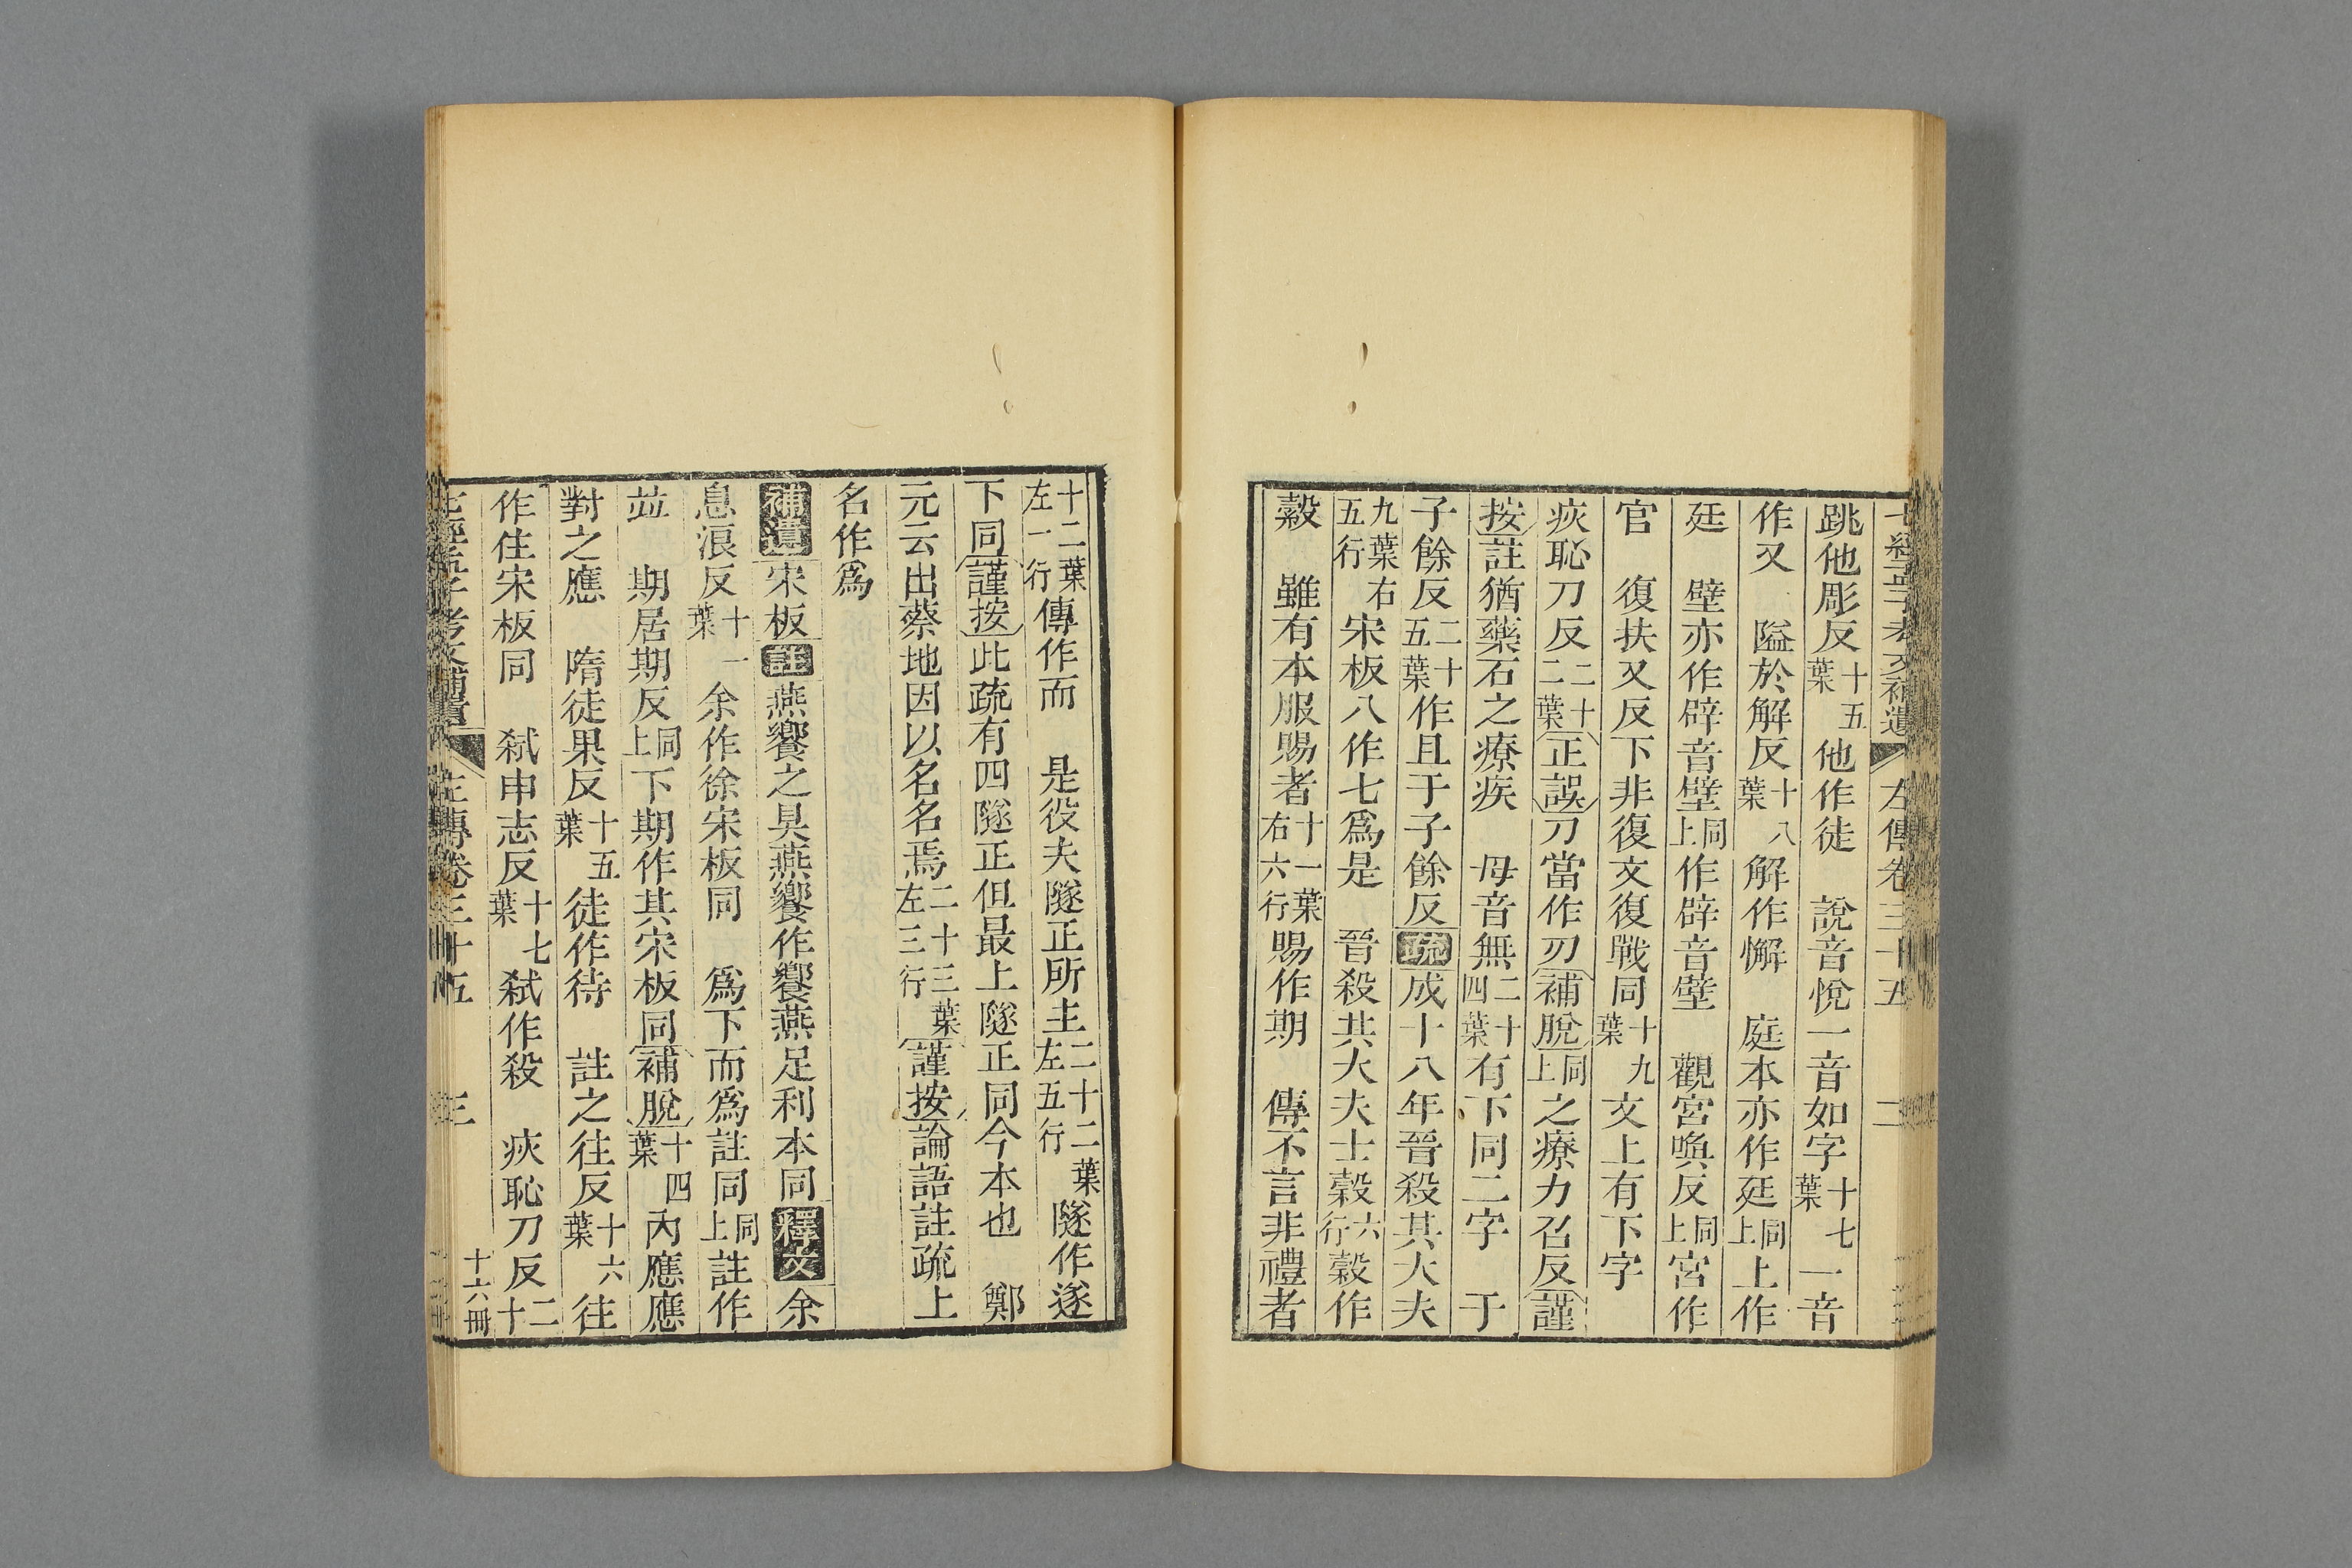 七經孟子考文補遺 左傳卷三十五 二
跳他彫反十五葉他作徒 說音悅一音如字十七葉一音
作又 隘於解反十八葉解作懈 庭本亦作廷同上上作
廷 壁亦作辟音壁同上作辟音壁 觀宮喚反同上宮作
官 復扶又反下非復文復戰同十九葉文上有下字
疢恥刀反二十二葉正誤刀當作刃補脫同上之療力召反謹
按註猶藥石之療疾 毋音無二十四葉有下同二字 于
子餘反二十五葉作且于子餘反疏成十八年晉殺其大夫
九葉右五行宋板八作七爲是 晉殺其大夫士穀六行穀作
縠 雖有本服賜者十一葉右六行賜作期 傳不言非禮者
十二葉左一行傳作而 是役夫隧正所主二十二葉左五行隧作遂
下同謹按此疏有四隧正但最上隧正同今本也 鄭
元云出蔡地因以名名焉二十三葉左三行謹按論語註疏上
名作爲
補遺宋板註燕饗之具燕饗作饗燕足利本同釋文余
息浪反十一葉余作徐宋板同 爲下而爲註同同上註作
並 期居期反同上下期作其宋板同補脫十四葉內應應
對之應 隋徒果反十五葉徒作待 註之往反十六葉往
作住宋板同 弒申志反十七葉弒作殺 疢恥刀反二十
七經孟子考文補遺 左傳卷三十五 三
十六冊